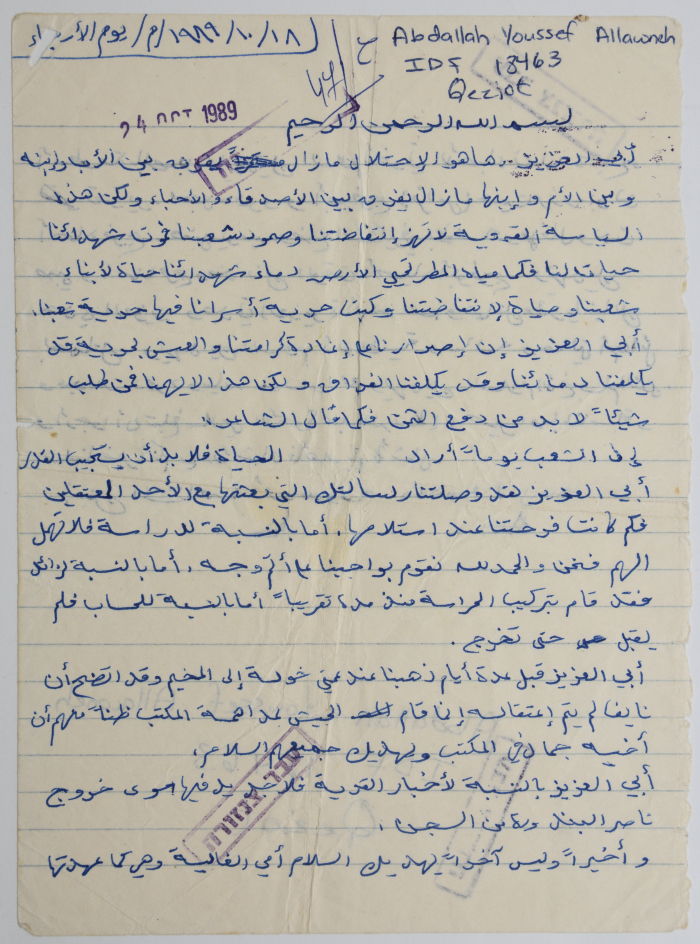 ١٨/١٠/١٩٨٩/م/ يوم الأربعاء
Abdallah Youssef Allawneh
IDF 18463
Qeziot
24 OCT 1989
بسم الله الرحمن الرحيم
أبي العزيز.. ها هو الإحتلال مازال يفرق بين الأب وابنه
وبين الأم وإبنها مازال يفرق بين الأصدقاء والأحباء ولكن هذه
السياسة القمعية لا تهز إنتفاضتنا وصمود شعبنا فموت شهدائنا
حياة لنا فكما مياه المطر تحيي الأرض دماء شهدائنا حياة لأبناء
شعبنا وحياة لإنتفاضتنا وكبت حرية أسرانا فيها حرية شعبنا.
أبي العزيز إن إصرارنا على إعادة كرامتنا والعيش بحرية قد
يكلفنا دمائنا وقد يكلفنا الفراق ولكن هذا لا يهمنا فمن طلب
شيئاً لا بد من دفع الثمن فكما قال الشاعر..
إذا الشعب يوماً أراد الحياة فلا بد أن يستجيب القدر
أبي العزيز لقد وصلتنا رسالتك التي بعثتها مع الأحد المعتقلين
فكم كانت فرحتنا عند استلامها. أما بالنسبة للدراسة فلا تهل
الهم فنحن والحمد لله نقوم بواجبنا على أتم وجه. أما بالنسبة
فقد قام بتركيب الحراسة منذ مدة تقريباً أما بالنسبة للحساب فلم
يقبل حتى تخرج.
أبي العزيز قبل عدة أيام ذهبنا عند عمتي خولة إلى المخيم وقد اتضح أن
نايف لم يتم إعتقاله إنما قام الجيش بمداهمة المكتب ظناً منهم أن
أخيه جمال في المكتب ويهديك جميعهم السلام.
أبي العزيز بالنسبة لأخبار القرية فلا جديد فيها سوى خروج
ناصر من السجن.
وأخيراً وليس آخراً يهديك السلام أمي الغالية وهي كما عهدتها